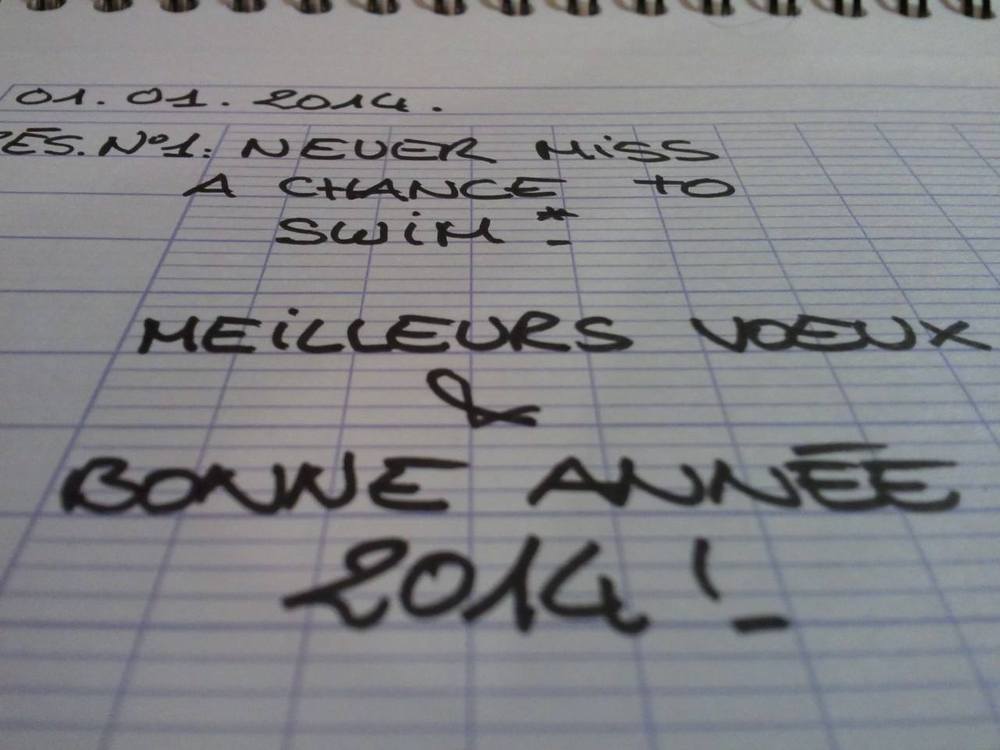 01.01.2014.
RÉS. N°1: NEVER MISS
A CHANCE TO
SWIM*.
MEILLEURS VOEUX
&
BONNE ANNÉE
2014!